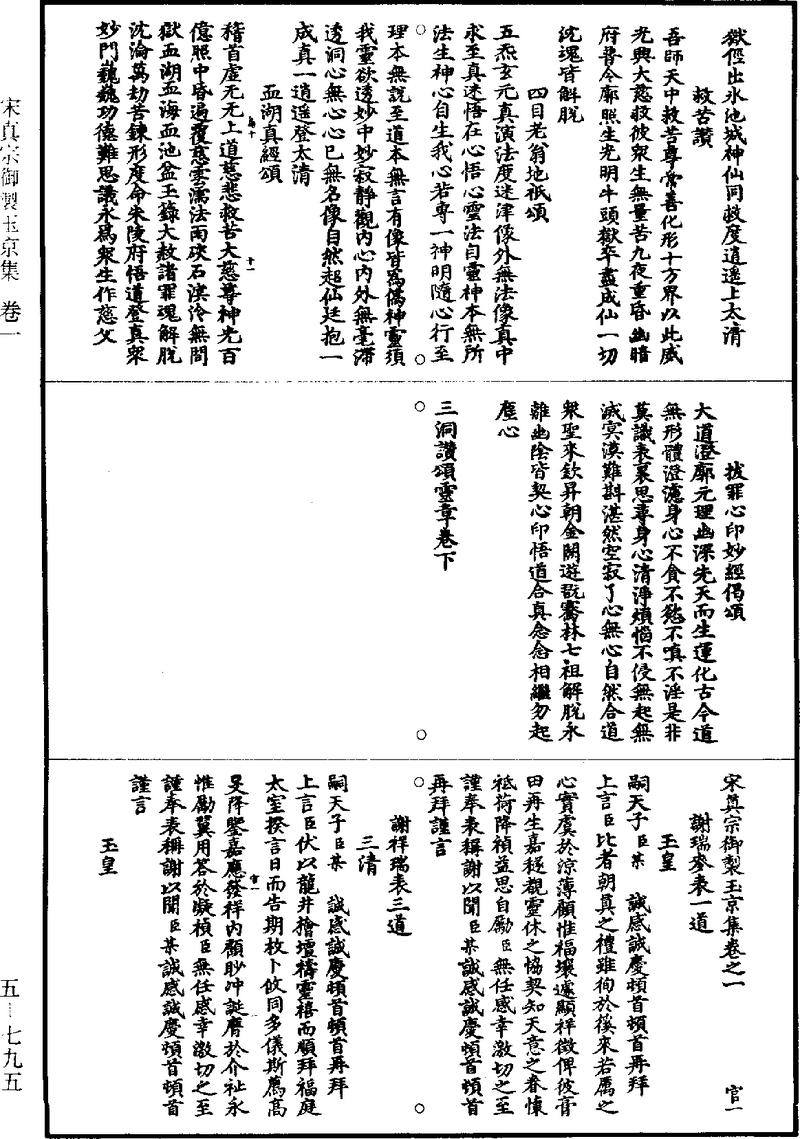 獄俓出氷池城神仙同救度逍遥上太清
救苦讚
吾師天中救苦尊常善化形十方界以此威
光興大慈救彼衆生無量苦九夜重昏幽暗
府普令廓照生光明牛頭獄卒盡成仙一切
沈魂皆解脱
四目老翁地祇頌
五炁玄元真演法度迷津像外無法像真中
求至真迷悟在心悟心靈法自靈神本無所
法生神心自生我心若專一神明隨心行至
理本無説至道本無言有像皆爲僞神靈須
我靈欲透妙中妙寂静觀内心内外無毫滯
透洞心無心心已無名像自然超仙廷抱一
成真一逍遥登太清
血湖真經頌
稽首虚无无上道慈悲救苦大慈尊神光百
億照中昏遍覆慈雲灑法雨硤石溟泠無間
獄血湖血海血池盆玉籙大赦諸罪魂解脱
沈淪萬劫苦鍊形度命朱陵府悟道登真衆
妙門巍巍功德難思議永爲衆生作慈父
拔罪心印妙經偈頌
大道澄廓元理幽深先天而生運化古今道
無形體澄濾身心不貪不慾不嗔不淫是非
莫議表裏思尋身心清淨煩惱不侵無起無
滅冥漠難斟湛然空寂了心無心自然合道
衆聖來欽昇朝金闕遊翫騫林七祖解脱永
離幽陰皆契心印悟道合真念念相繼勿起
塵心
三洞讚頌靈章卷下
宋真宗御製玉京集卷之一
官一
謝瑞麥表一道
玉皇
嗣天子臣某 誠感誠慶頓首頓首再拜
上言臣比者朝真之禮雖徇於徯來若厲之
心實虞於涼薄顧惟福壤遽顯祥徵俾彼膏
田再生嘉穟覩靈休之恊契知天意之眷懷
祗荷降禎益思自勵臣無任感幸激切之至
謹奉表稱謝以聞臣某誠感誠慶頓首頓首
再拜謹言
謝祥瑞表三道
三清
嗣天子臣某 誠感誠慶頓首頓首再拜
上言臣伏以龍井檜壇禱靈禧而順拜福庭
太室揆吉日而告期枚卜攸同多儀斯薦高
旻降鑒嘉應發祥内顧眇冲誕膺於介祉永
惟勵翼用荅於凝禎臣無任感幸激切之至
謹奉表稱謝以聞臣某誠感誠慶頓首頓首
謹言
玉皇
宋真宗御製玉京集 卷一
五—七九五